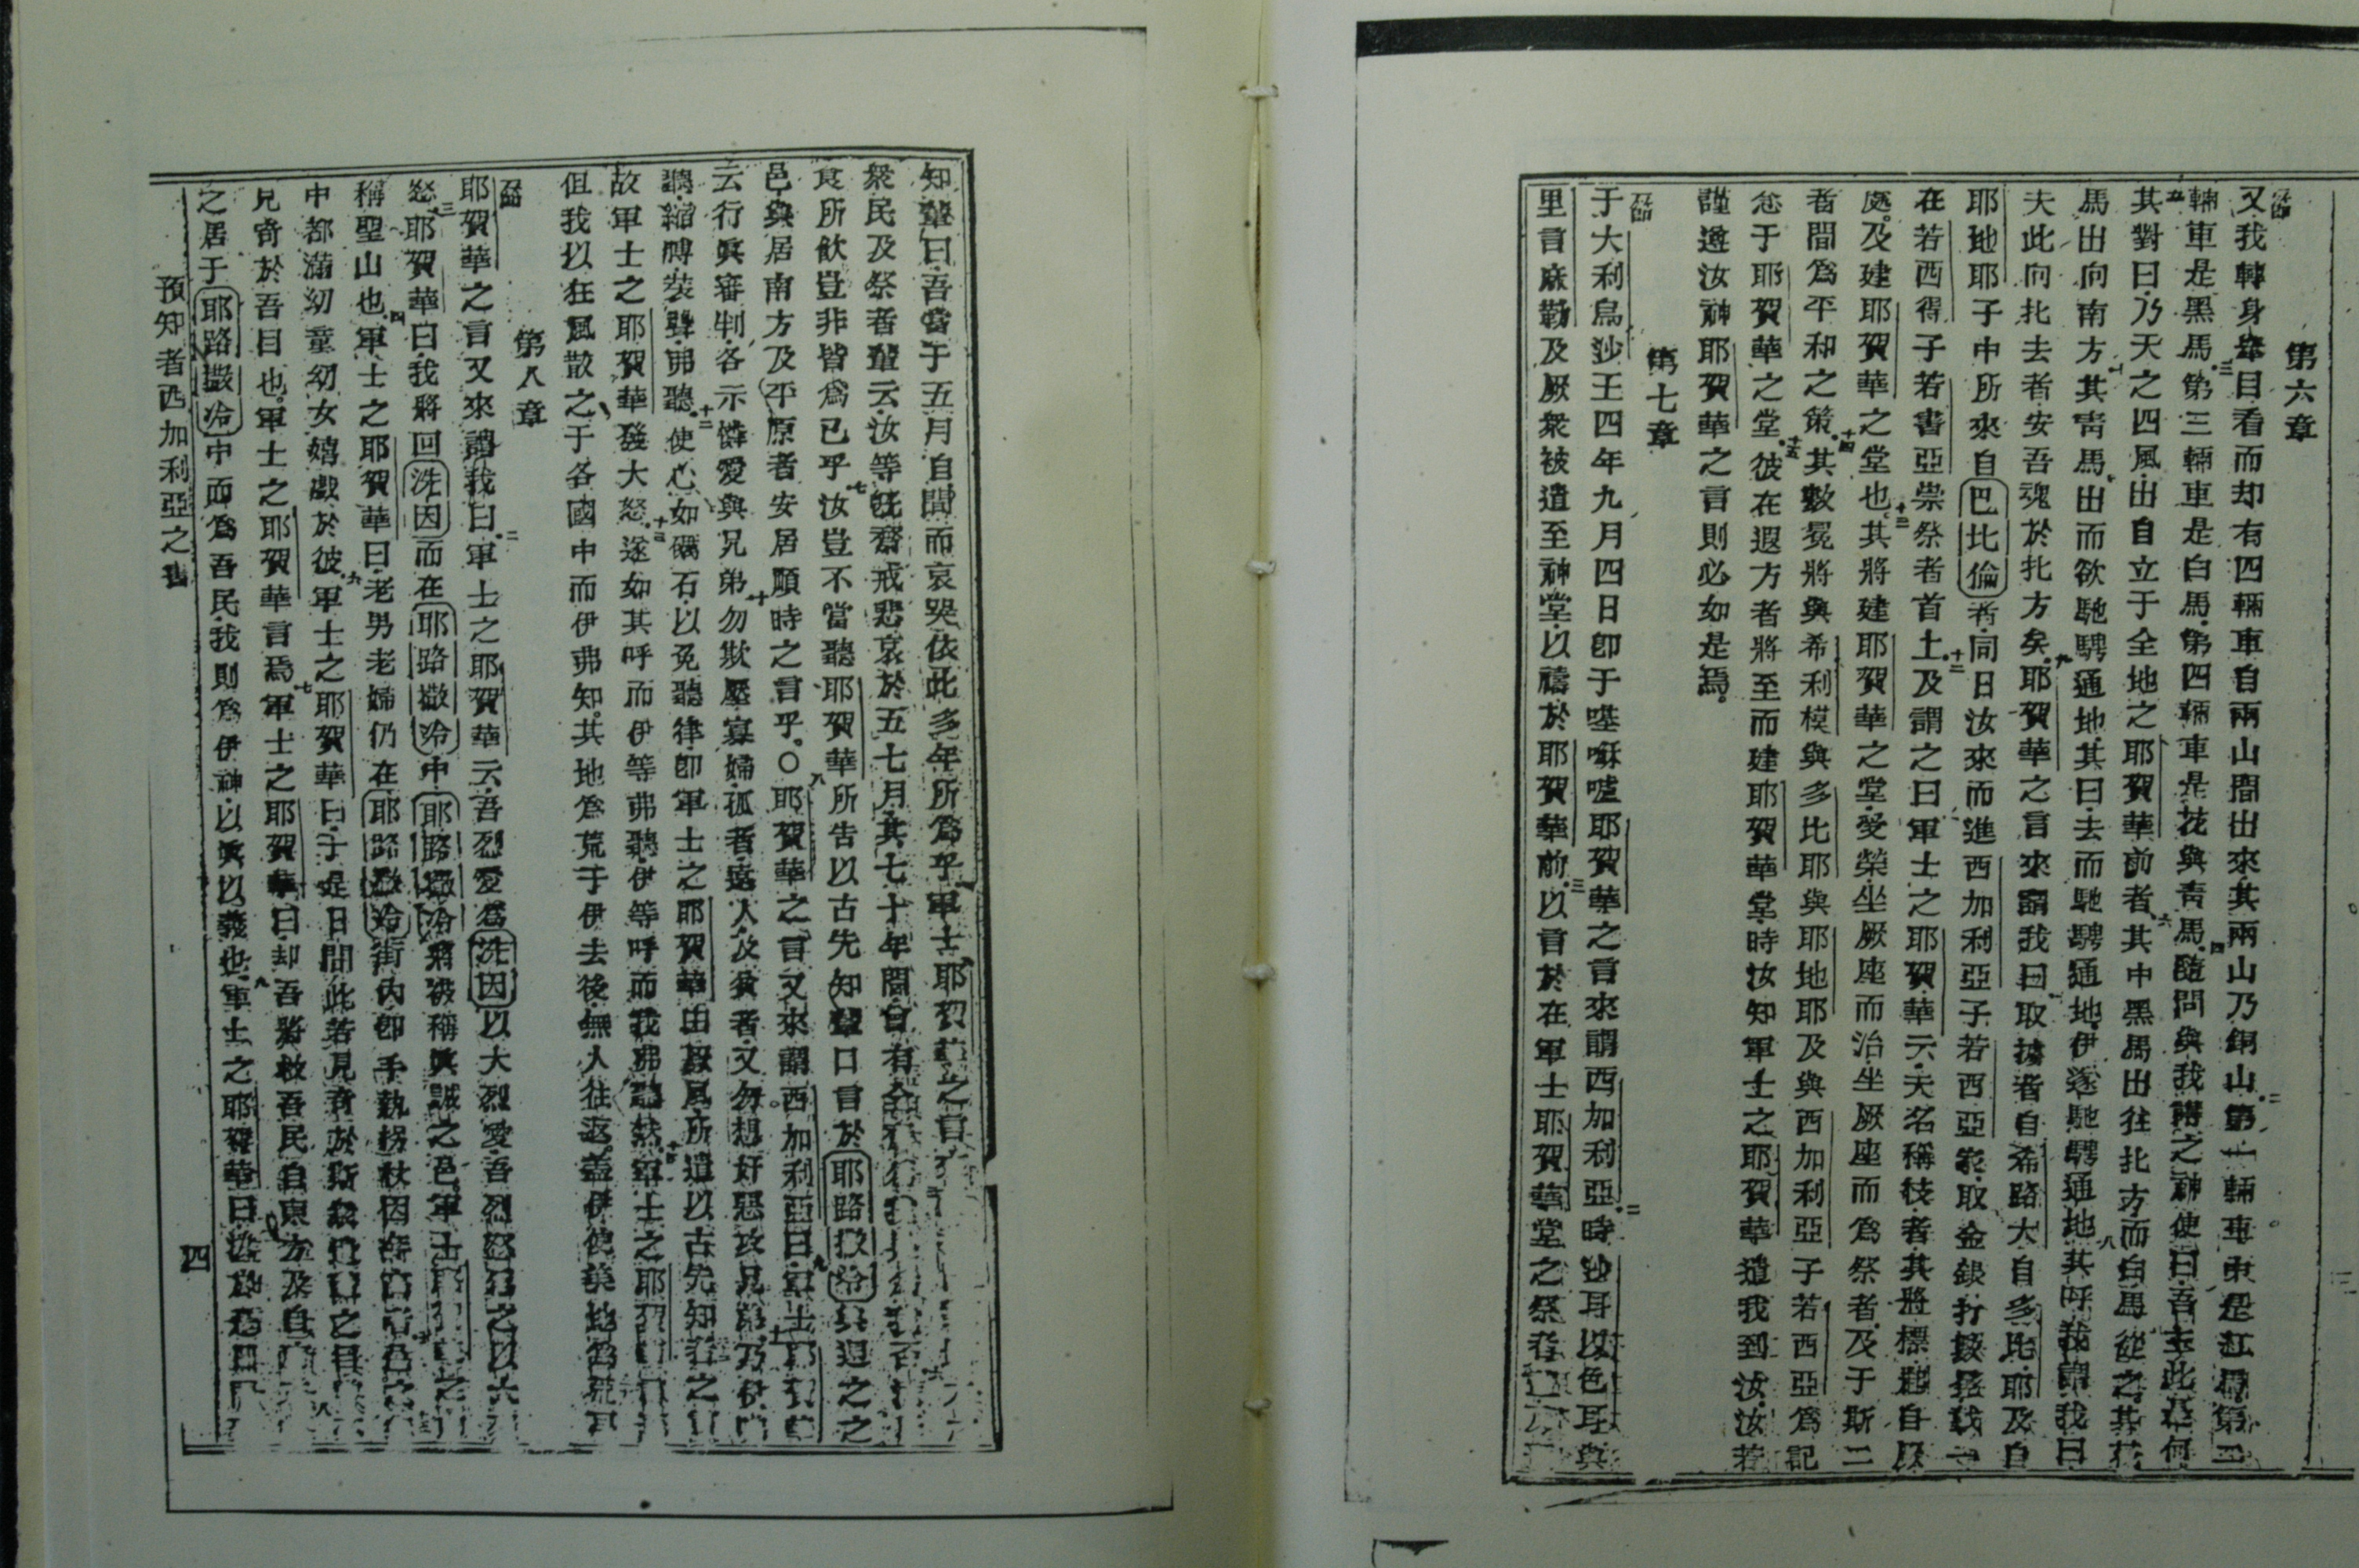 第六章
又我轉身舉目看而却有四輛車自兩山間出來其兩山乃銅山第一輛車束是紅馬第二
輛車是黑馬第三輛車是白馬第四輛車是花與青馬隨問與我講之神使曰吾主此是何
其對曰乃天之四風出自立于全地之耶賀華前者其中黑馬出往北方而白馬從之其花
馬出向南方其青馬出而欲馳騁通地其曰去而馳騁通地伊遂馳騁通地其呼我謂我曰
夫此向北去者安吾魂於北方矣耶賀華之言來謂我曰取擄者自希路大自多比耶及自
耶地耶子中所來自巴比倫者同日汝來而進西加利亞子若西亞家取金銀打數冕
在若西得子若書亞祟祭者首上及謂之曰軍士之耶賀華云夫名稱枝者其將標起自厥
處及建耶賀華之堂也其將建耶賀華之堂受榮坐厥座而治坐厥座而為祭者及于斯二
者間為平和之策其數冕將與希利模與多比耶與耶地耶及與西加利亞子若西亞為記
念于耶賀華之堂彼在遐方者將至而建耶賀華堂時汝知軍士之耶賀華遣我到汝汝若
謹遵汝神耶賀華之言則必如是焉
第七章
于大利烏沙王四年九月四日即于噻嘛嘘耶賀華之言來謂西加利亞時沙耳以色耳與
里言麻勒及厥衆被遣至神堂以禱於耶賀華前以言於在軍士耶賀華堂之祭者
知輩曰吾當于五月自間而哀哭依此多年所為乎軍士耶賀華之言
衆民及祭者輩云汝等既齋戒悲哀於五七月其七十年間自有
食所飲豈非皆為已乎汝豈不當聽耶賀華所告以古先知輩口言於耶路撒冷與迴之之
邑與居南方及平原者安居順時之言乎〇耶賀華之言又來謂西加利亞曰軍士耶賀華
云行眞審判各示憐愛與兄弟勿欺壓寡婦孤者遠人及貧者又勿想奸惡攻兄弟乃伊
聽縮膊裝聾弗聽使心如礪石以免聽律即軍士之耶賀華由厥風所遣以古先知者之
故軍士之耶賀華發大怒遂如其呼而伊等弗聽伊等呼而我弗聽然軍士之耶賀
但我以狂風散之于各國中而伊弗知其地為荒于伊去後無人往返蓋伊使美地為荒
第八章
耶賀華之言又來謂我曰軍士之耶賀華云吾烈愛為洗因以大烈愛吾烈愛之以大
怒耶賀華曰我將回洗因而在耶路撒冷中耶路撒冷將被稱眞誠之邑軍士耶
稱聖山也軍士之耶賀華曰老男老婦仍在耶路撒冷街內即手執拐杖因
中都滿幼童幼女嬉戲於彼軍士之耶賀華曰于是日間此若見奇於斯
見奇於吾目也軍士之耶賀華言焉軍士之耶賀華曰却吾將救吾民自東方及自
之居于耶路撒冷中而為吾民我則為伊神以眞以義也軍士之耶賀華曰
預知者西加利亞之書
四